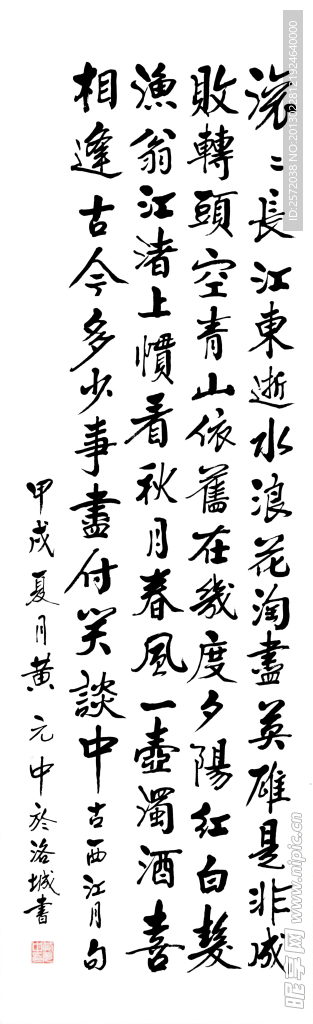 滾〻長江東逝水浪花淘盡英雄是非成
敗轉頭空青山依舊在幾度夕陽紅白髮
漁翁江渚上慣看秋月春風一壺濁酒喜
相逢古今多少事盡付笑談中古西江月句
甲戌夏月黄元中於洛城書
ID:2572038 NO:20130228121924640000
昵享网 www.nipic.cn